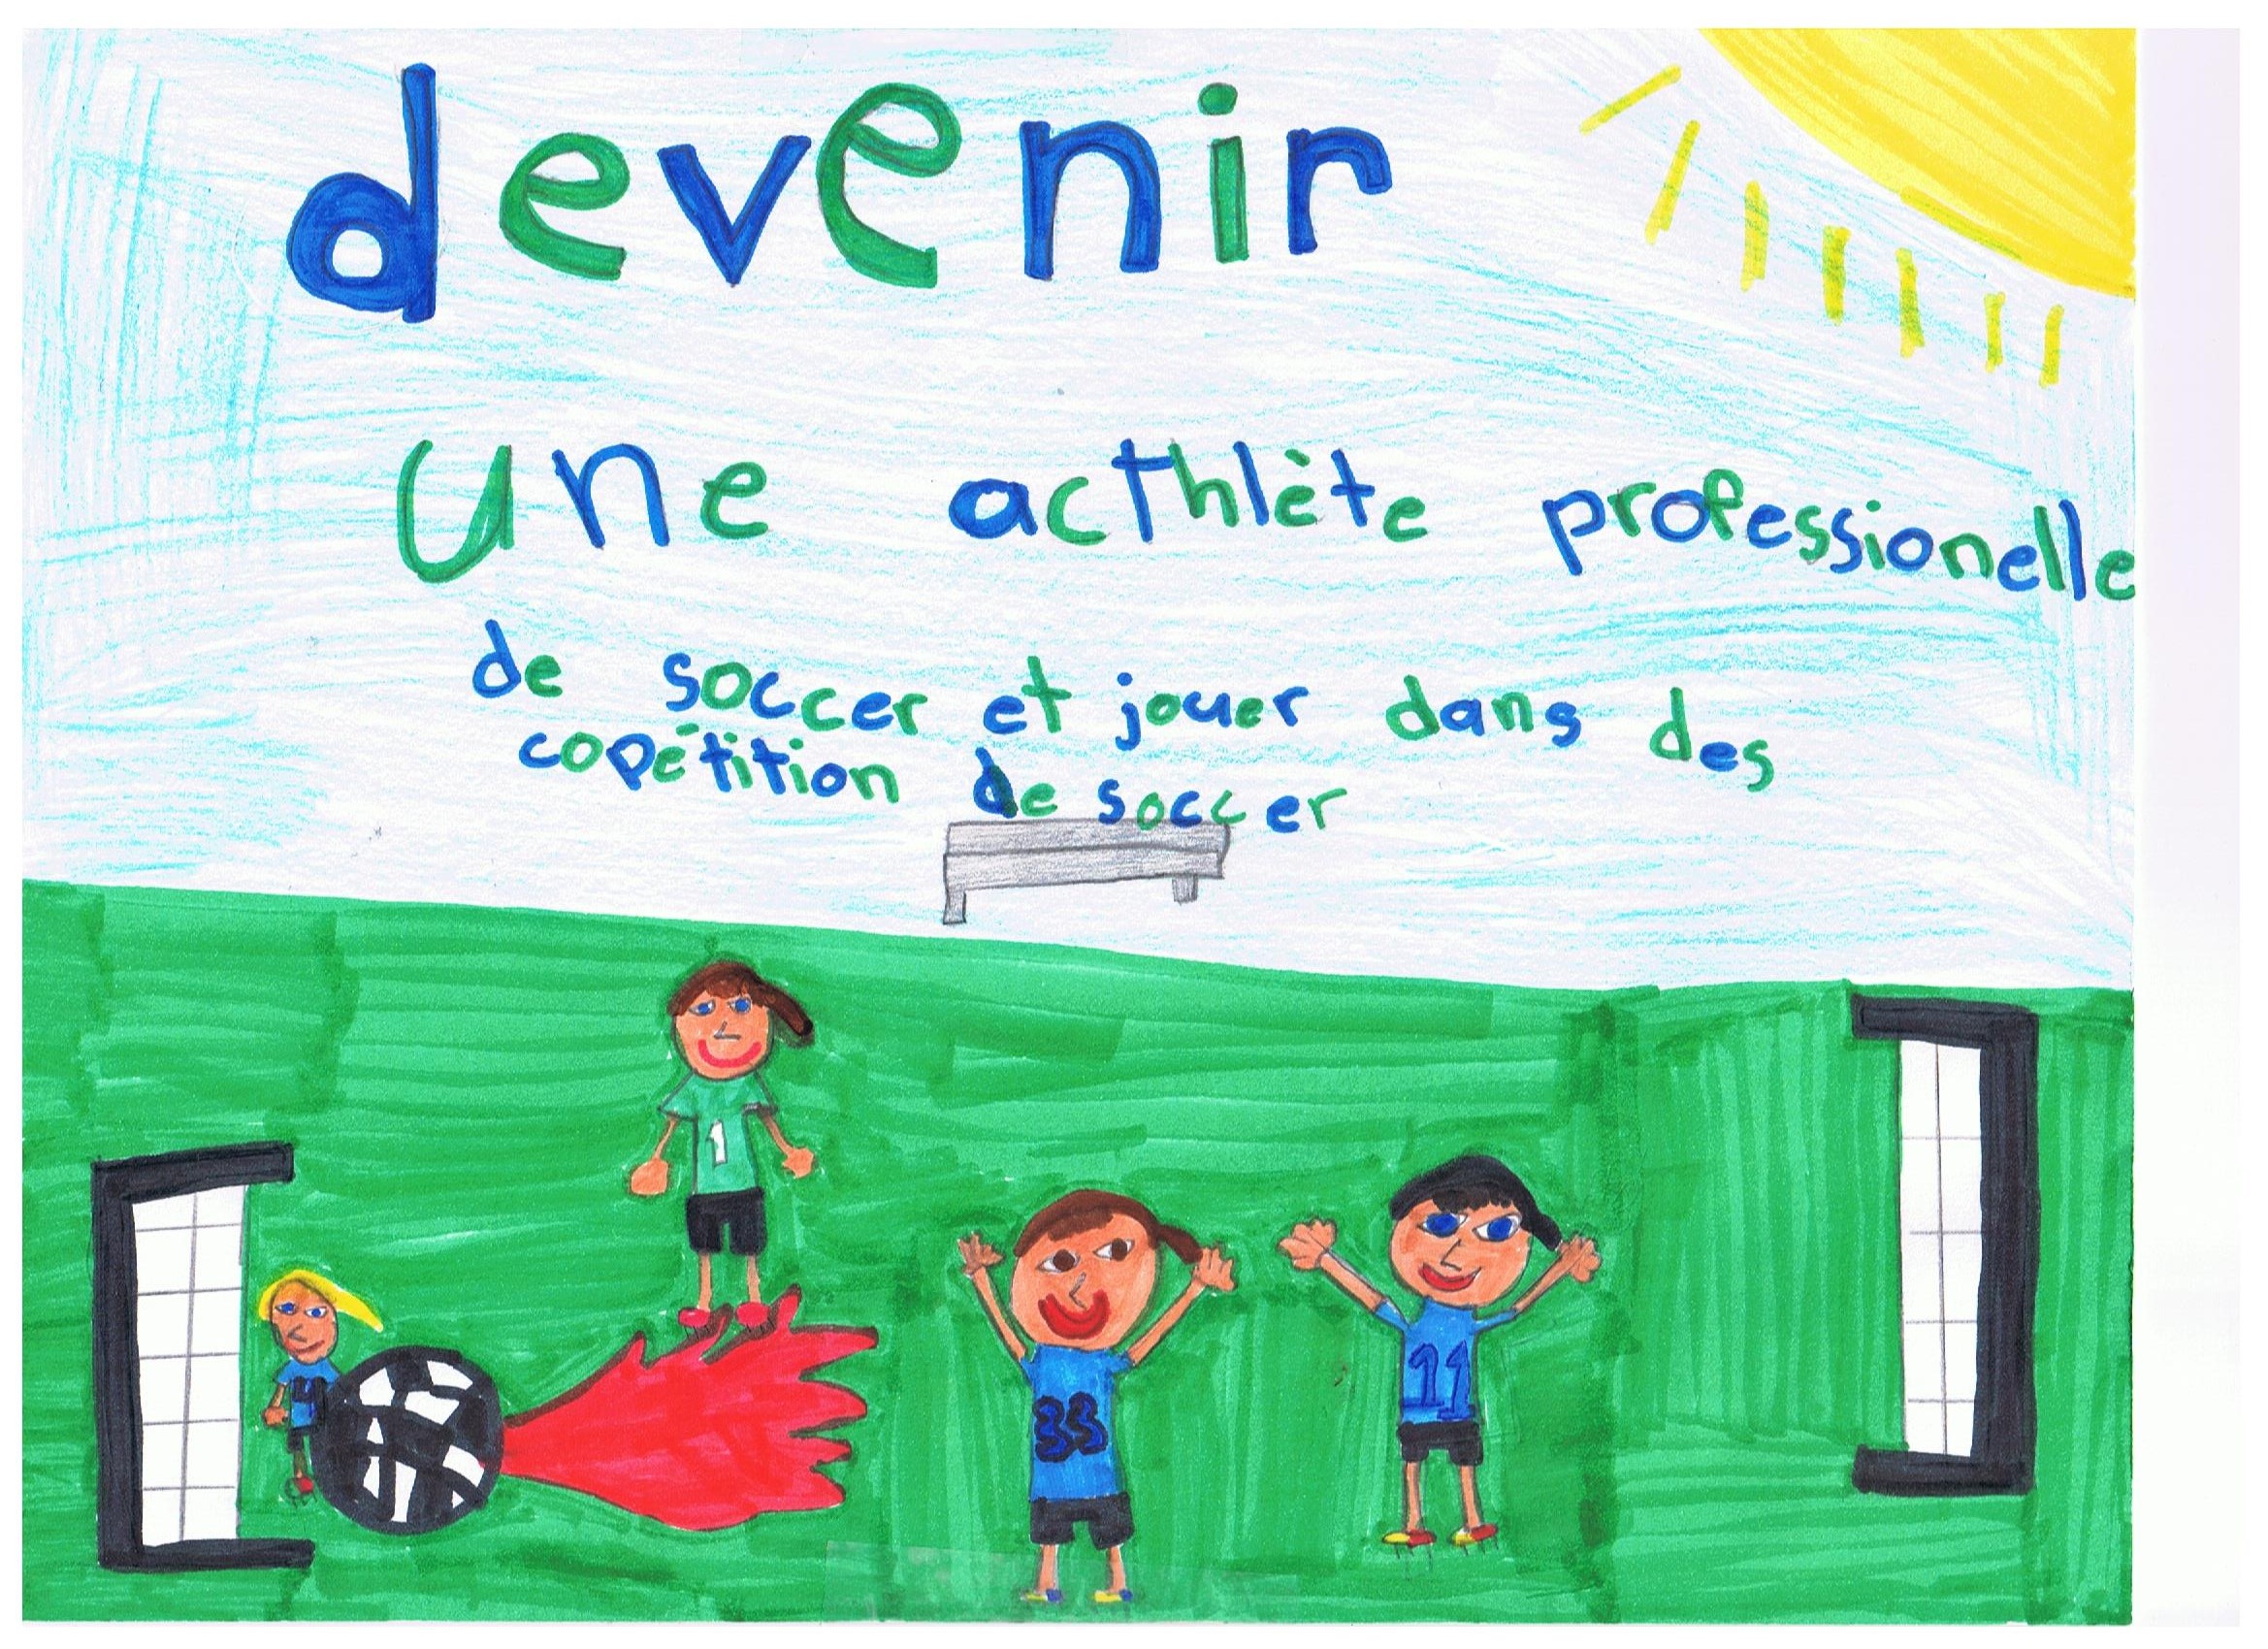 devenir
une acthlète professionelle
de soccer et jouer dans des
copétition de soccer
1
4
33
11